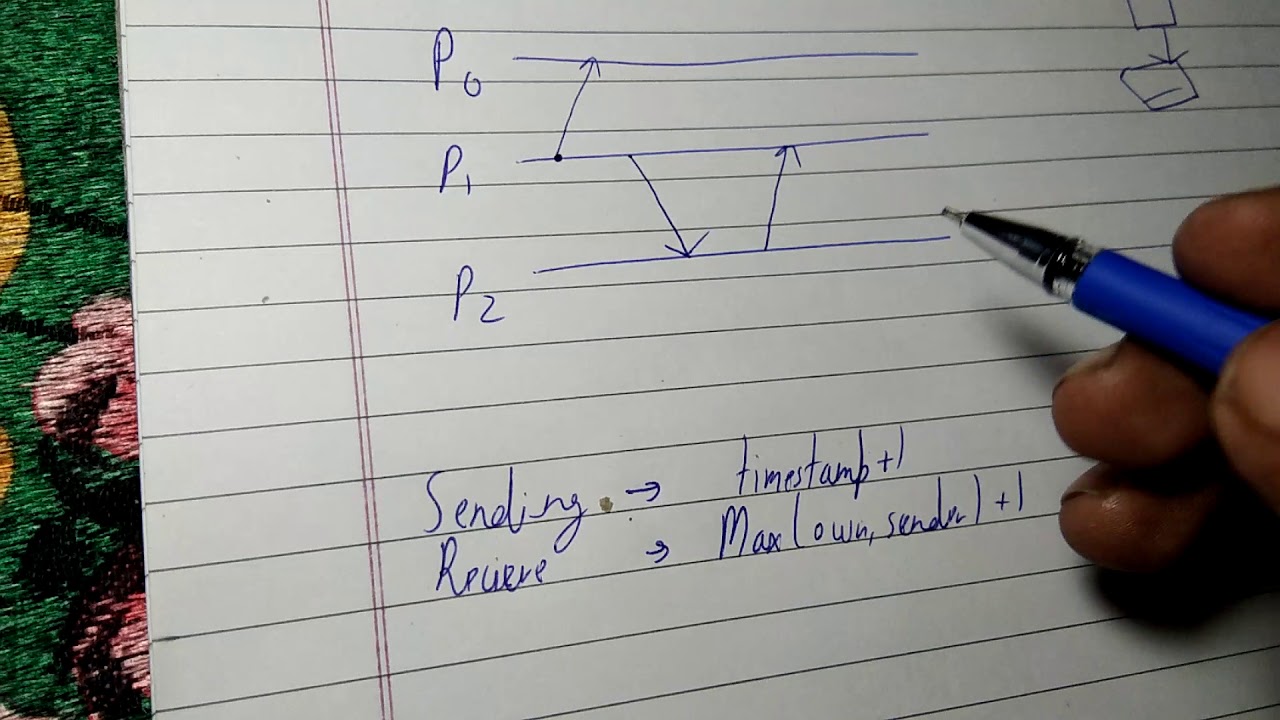 P0
P1
P2
Sending → timestamp+1
Recieve → Max(own, sender)+1